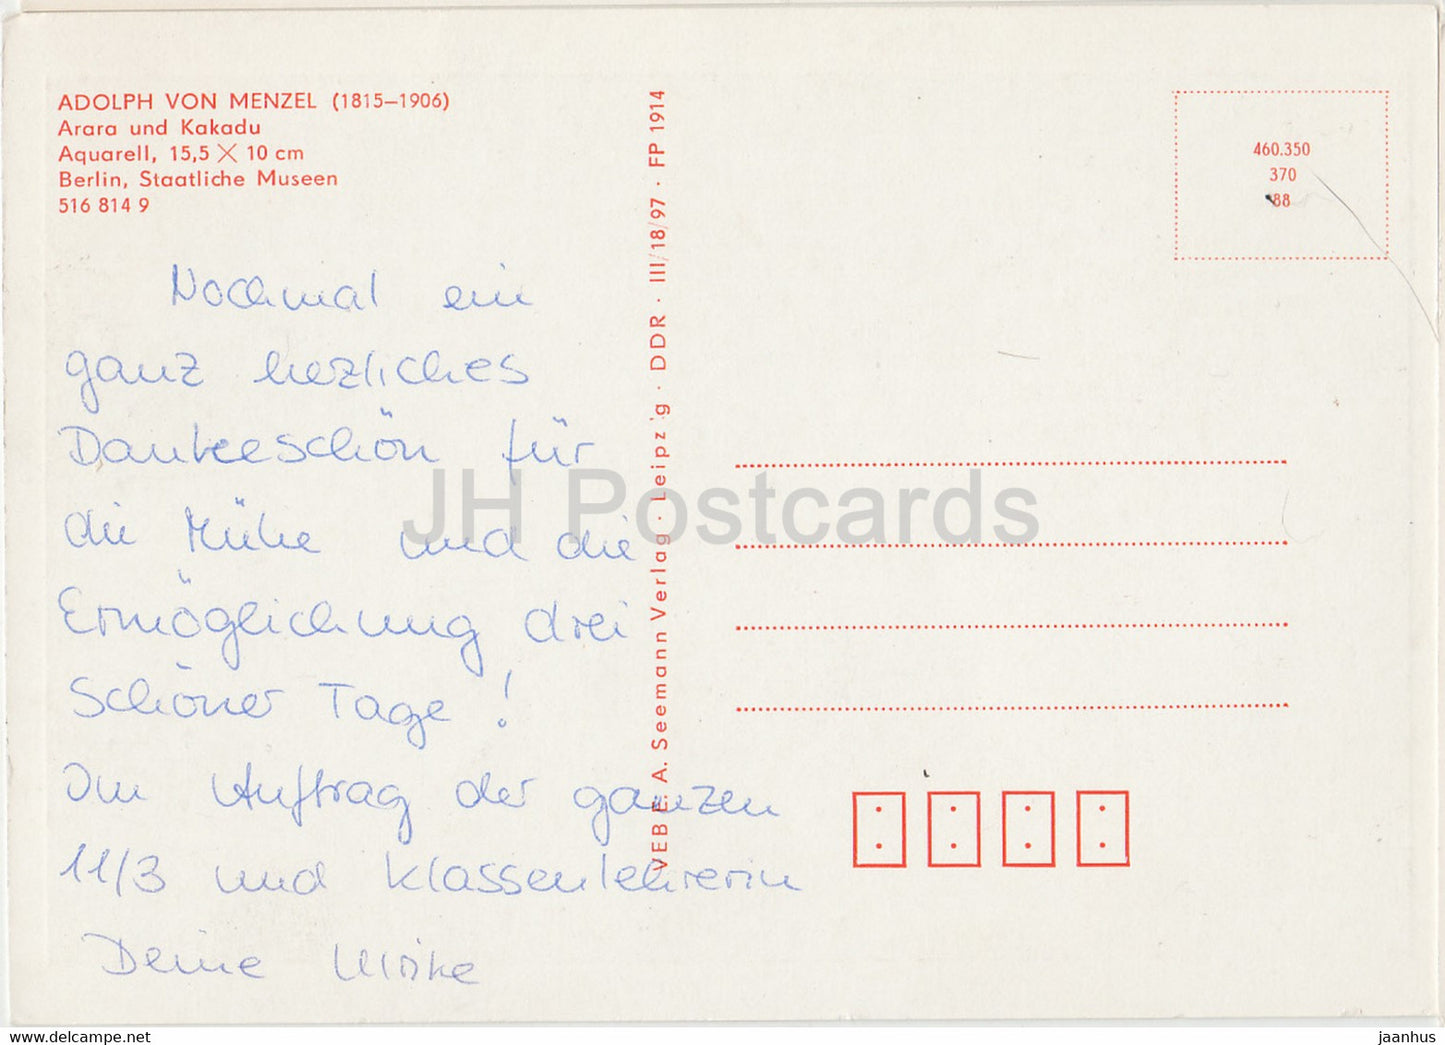 ADOLPH VON MENZEL (1815–1906)
Arara und Kakadu
Aquarell, 15,5 × 10 cm
Berlin, Staatliche Museen
516 814 9
Nochmal ein
ganz herzliches
Dankeeschön für
die Mühe und die
Ermöglichung drei
schöner Tage!
Im Auftrag der ganzen
11/3 und Klassenlehrerin
Deine Ulrike
VEB E. A. Seemann Verlag · Leipzig · DDR · III/18/97 · FP 1914
460.350
370
88
JH Postcards
delcampe.net
jaanhus